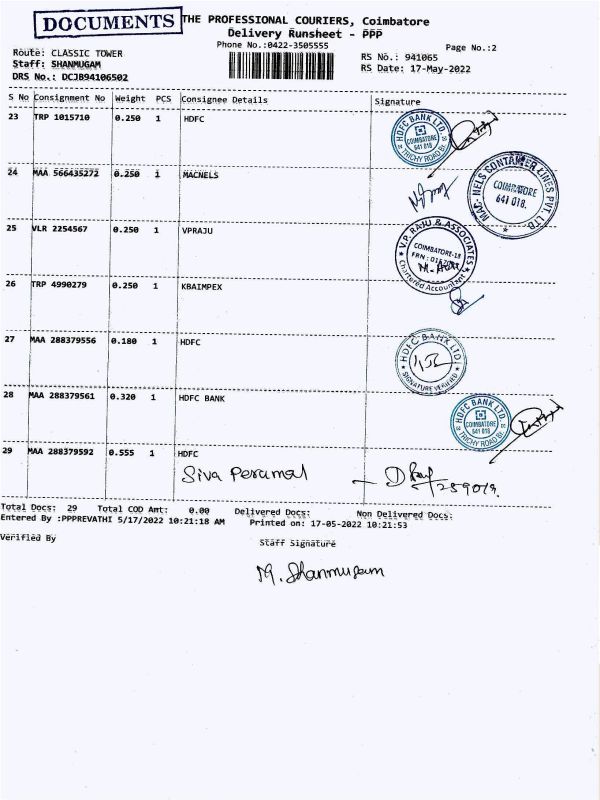 DOCUMENTS
THE PROFESSIONAL COURIERS, Coimbatore
Delivery Runsheet - PPP
Phone No.:0422-3505555
Page No.:2
Route: CLASSIC TOWER
RS No.: 941065
Staff: SHANMUGAM
RS Date: 17-May-2022
DRS No.: DCJB94106502
S No Consignment No Weight PCS Consignee Details Signature
23 TRP 1015710 0.250 1 HDFC
HDFC BANK LTD.
COIMBATORE
641 018
TRICHY ROAD BR.
24 MAA 566435272 0.250 1 MACNELS
MAC-NELS CONTAINER LINES PVT. LTD.
COIMBATORE
641 018.
25 VLR 2254567 0.250 1 VPRAJU
V.P. RAJU & ASSOCIATES
COIMBATORE-18
Chartered Accountant
26 TRP 4990279 0.250 1 KBAIMPEX
27 MAA 288379556 0.180 1 HDFC
HDFC BANK LTD
SIGNATURE VERIFIED
28 MAA 288379561 0.320 1 HDFC BANK
HDFC BANK LTD.
COIMBATORE
641 018
TRICHY ROAD BR.
29 MAA 288379592 0.555 1 HDFC
Siva Perumal
Total Docs: 29 Total COD Amt: 0.00 Delivered Docs: Non Delivered Docs:
Entered By :PPPREVATHI 5/17/2022 10:21:18 AM Printed on: 17-05-2022 10:21:53
Verified By
Staff Signature
M. Shanmugam